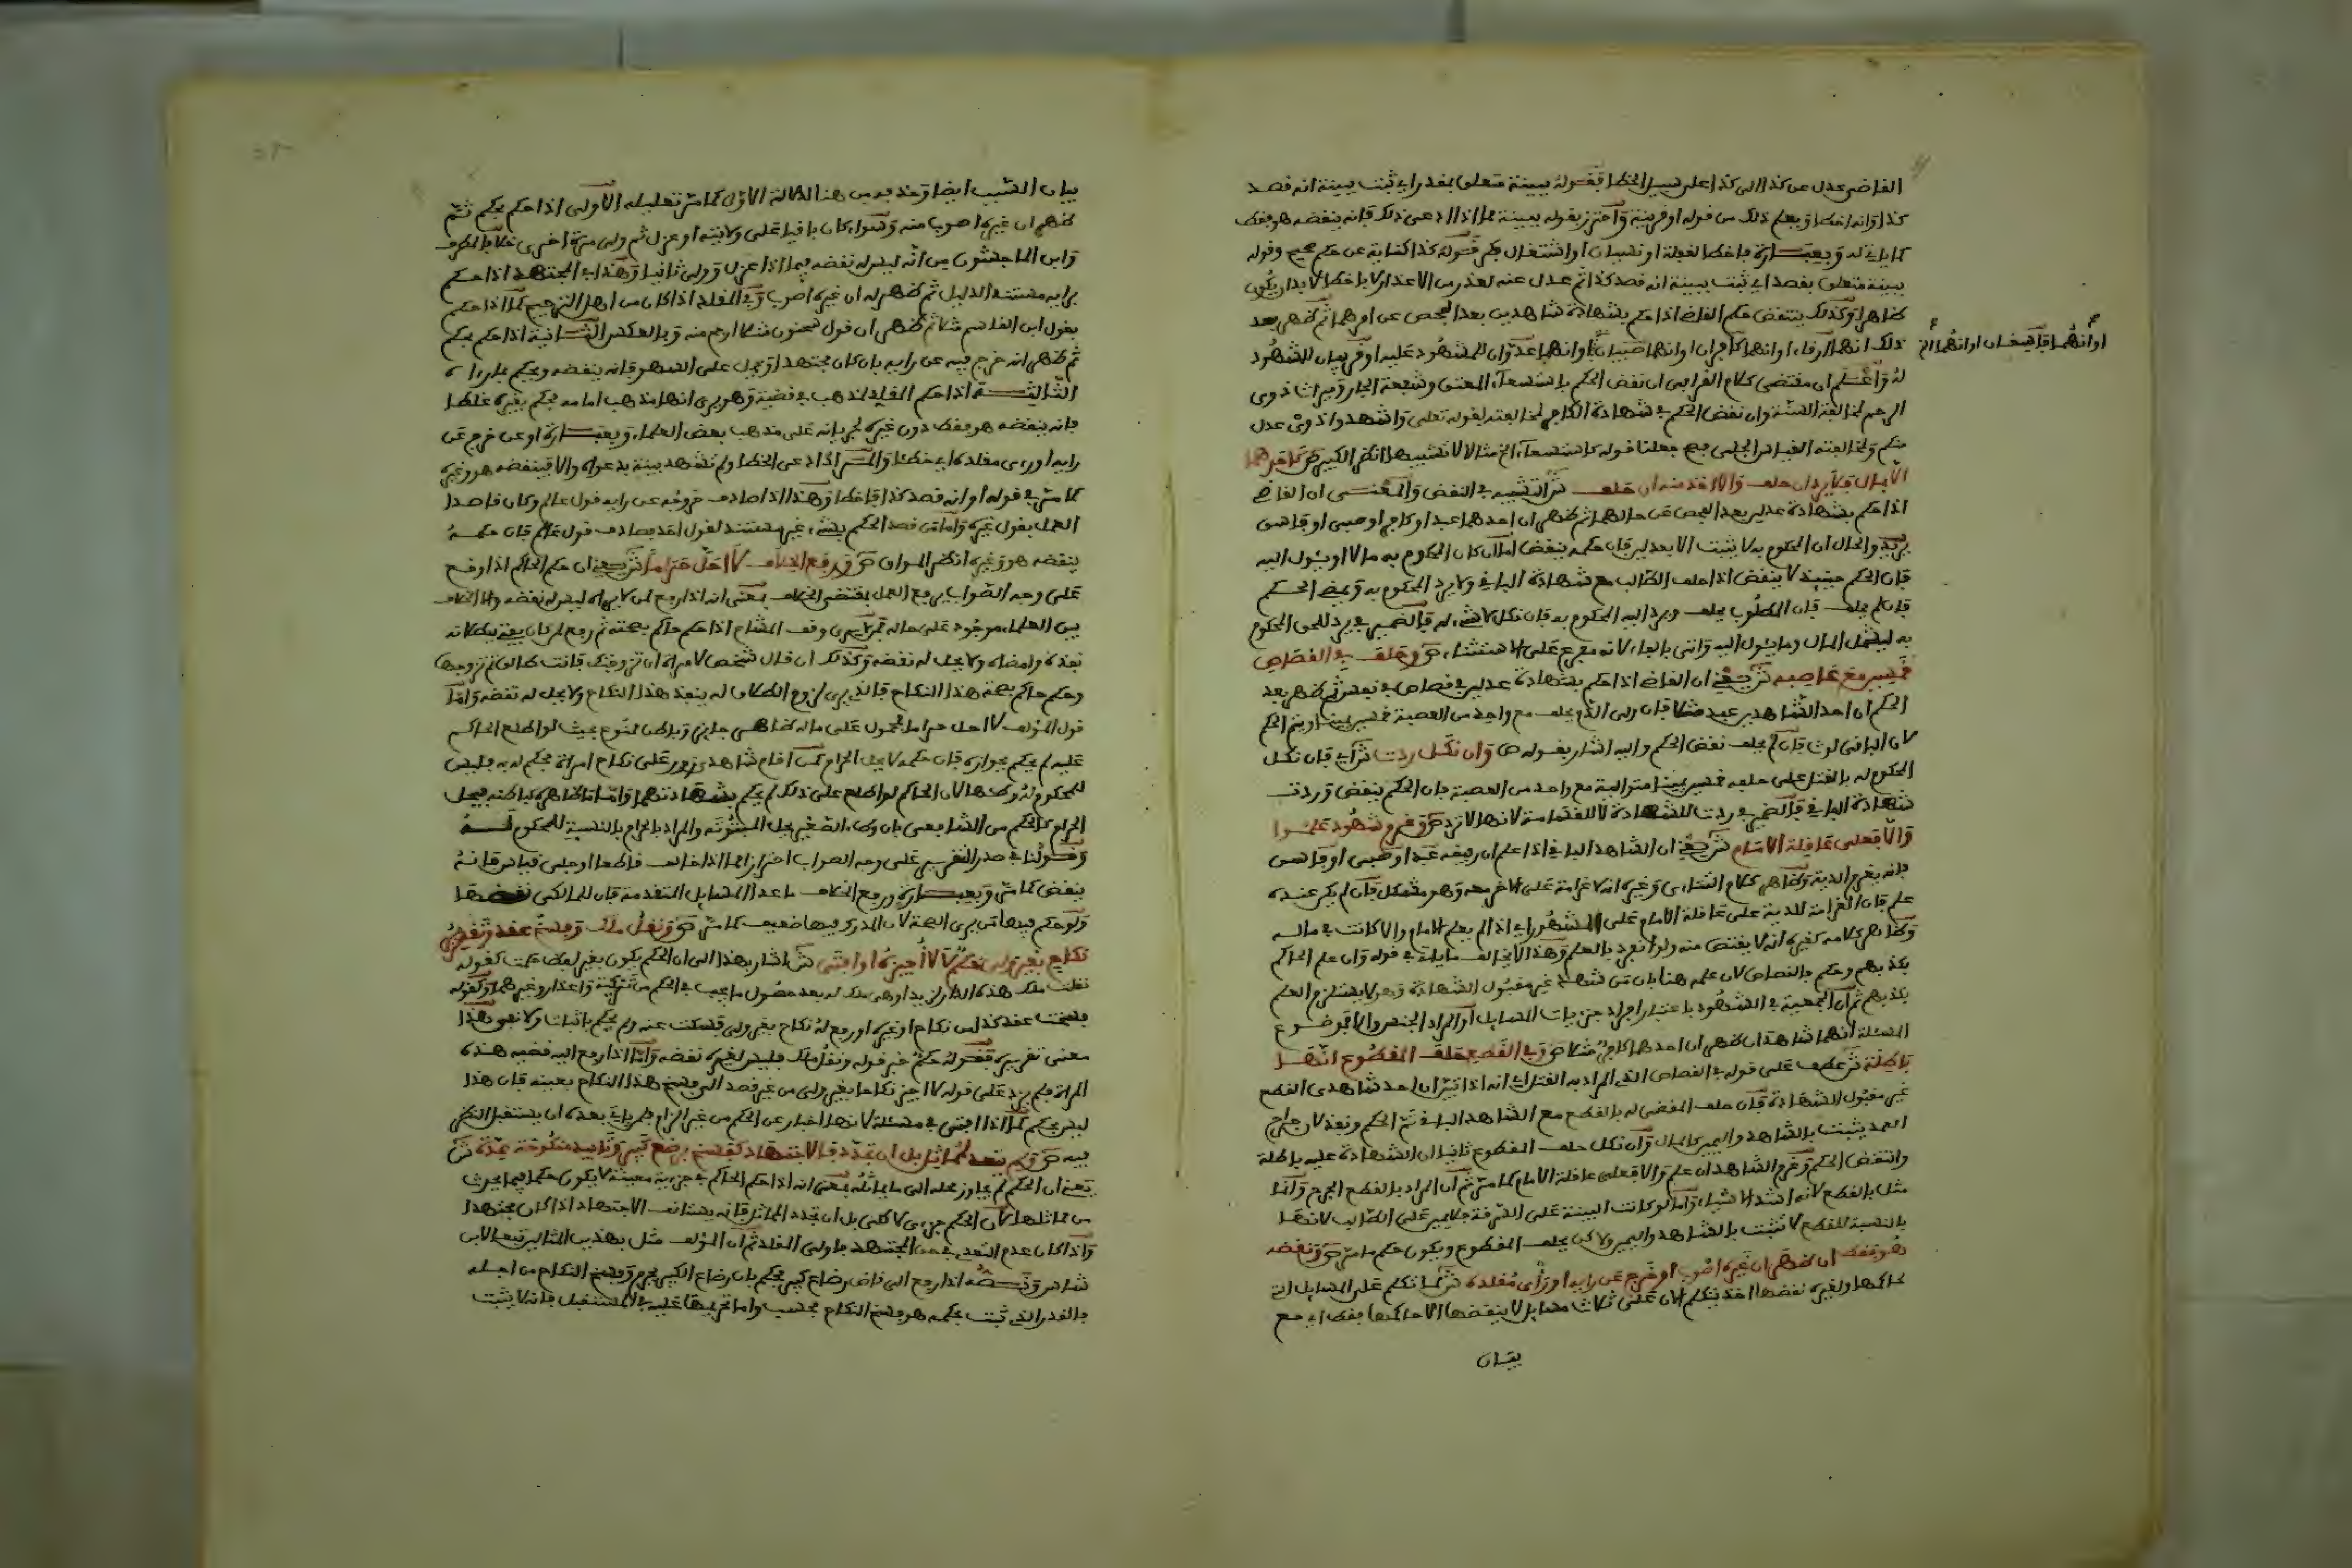 القاضي عدل عن كذا الى كذا على سبيل الخطا فقوله ببينة متعلق بمقدر اي ثبت ببينة انه قصد
كذا وانه اخطا ويعلم ذلك من قوله او قرينة واحترز بقوله ببينة مما اذا ادعى ذلك فانه ينقضه هو فقط
كما ياتي له وبعبارة فاخطا لغفلة او نسيان او اشتغال فكر قوله كذا كناية عن حكم صحيح وقوله
ببينة متعلق بقصد اي ثبت ببينة انه قصد كذا ثم عدل عنه لعذر من الاعذار فاخطا لا بد ان يكون
ظاهرا وكذلك ينتقض حكم القاضي اذا حكم بشهادة شاهدين بعد الفحص عن امرهما ثم ظهر بعد
ذلك انهما ارقاء او انهما كافران او انهما صبيان او انهما عدوان للمشهود عليه او قريبان للمشهود
او انهما فاسقان او انهما
له واعلم ان مقتضى كلام القرافي ان نقض الحكم باستسعاء المعتق وشفعة الجار وميراث ذوي
الرحم لمخالفة السنة وان نقض الحكم في شهادة الكافر لمخالفته لقوله تعلى واشهدوا ذوي عدل
منكم ولمخالفته القياس الجلي فصح جعلنا قوله كاستسعاء الخ مثالا لا تشبيها انظر الكبير ص كاحدهما
الا بمال فلا يرد ان حلف والا اخذ منه ان حلف ش التشبيه في النقض والمعنى ان القاضي
اذا حكم بشهادة عدلين بعد الفحص عن حالهما ثم ظهر ان احدهما عبد او كافر او صبي او فاسق
يريد والحال ان المحكوم به لا يثبت الا بعدلين فان حكمه ينقض اما ان كان المحكوم به مالا او يئول اليه
فان الحكم حينئذ لا ينقض اذا حلف الطالب مع شهادة الباقي ولا يرد المحكوم به ويمضي الحكم
فان لم يحلف فان المطلوب يحلف ويرد اليه المحكوم به فان نكل لا شيء له فالضمير في يرد للحق المحكوم
به ليشمل المال وما يئول اليه واتى بالفاء لانه مفرع على الاستثناء ص وحلف في القصاص
خمسين مع عاصبه ش يعني ان القاضي اذا حكم بشهادة عدلين في قصاص في نفس ثم ظهر بعد
الحكم ان احد الشاهدين عبد مثلا فان ولي الدم يحلف مع واحد من العصبة خمسين يمينا ويتم الحكم
لان الباقي لوث فان لم يحلف نقض الحكم واليه اشار بقوله ص وان نكل ردت ش اي فان نكل
المحكوم له بالقتل على حلفه خمسين يمينا متوالية مع واحد من العصبة فان الحكم ينقض وردت
شهادة الباقي فالضمير في ردت للشهادة لا للقسامة لانها لا ترد ص وغرم شهود علموا
والا فعلى عاقلة الامام ش يعني ان الشاهد الباقي اذا علم ان رفيقه عبد او صبي او فاسق
فانه يغرم الدية وظاهر كلام الشارح وغيره انه لا غرامة على الاخر معه وهو مشكل فان لم يكن عنده
علم فان الغرامة للدية على عاقلة الامام على المشهور اي اذا لم يعلم الامام والا كانت في ماله
وظاهر كلامه كغيره انه لا يقتص منه ولو انفرد بالعلم وهذا لا يخالف ما ياتي في قوله وان علم الحاكم
بكذبهم وحكم فالقصاص لان علمه هنا بان من شهد غير مقبول الشهادة وهو لا يستلزم العلم
بكذبهم ثم ان الجمعية في الشهود باعتبار افراد جزيات المسايل او المراد الجنس والا فموضوع
المسئلة انهما شاهدان ظهر ان احدهما كافر مثلا ص وفي القطع حلف المقطوع انها
باطلة ش عطف على قوله في القصاص الذي المراد به القتل اي انه اذا تبين ان احد شاهدي القطع
غير مقبول الشهادة فان حلف المقضي له بالقطع مع الشاهد الباقي تم الحكم ونفذ لان جراح
العمد يثبت بالشاهد واليمين كالمال وان نكل حلف المقطوع ثانيا ان الشهادة عليه باطلة
وانتقض الحكم وغرم الشاهد ان علم والا فعلى عاقلة الامام كما مر ثم ان المراد بالقطع الجرح وانما
مثل بالقطع لانه اشد الاشياء واما لو كانت البينة على السرقة فلا يمين على الطالب لانها
بالنسبة للقطع لا تثبت بالشاهد واليمين ولا كن يحلف المقطوع ويكون حكم ما مر ص ونقضه
هو فقط ان ظهر ان غيره اصوب او خرج عن رايه او راي مقلده ش لما تكلم على المسايل التي
لحاكمها ولغيره نقضها اخذ يتكلم الان على ثلاث مسايل لا ينقضها الا حاكمها فقط اي مع
بيان
بيان السبب ايضا وخذ به من هنا لدلالة الاول كما مر تعليله الاولى اذا حكم بحكم ثم
ظهر ان غيره اصوب منه وسواء كان باقيا على ولايته او عزل ثم ولي مرة اخرى خلافا لمطرف
وابن الماجشون من انه ليس له نقضه فيما اذا عزل وولي ثانيا وهذا في المجتهد اذا حكم
برايه مستند الدليل ثم ظهر له ان غيره اصوب وفي المقلد اذا كان من اهل الترجيح كما اذا حكم
بقول ابن القاسم مثلا ثم ظهر ان قول سحنون مثلا ارجح منه وبالعكس الثانية اذا حكم بحكم
ثم ظهر انه خرج فيه عن رايه بان كان مجتهدا وحمل على السهو فانه ينقضه ويحكم بما رءاه
الثالثة اذا حكم المقلد لمذهب في قضية وهو يرى انها مذهب امامه فحكم بغيره غلطا
فانه ينقضه هو فقط دون غيره لجريانه على مذهب بعض العلماء وبعبارة او عن خرج عن
رايه او رءى مقلده اي خطئا والمراد ادعى الخطا ولم تشهد بينة بدعواه والا فينقضه هو وغيره
كما مر في قوله او انه قصد كذا فاخطا وهذا اذا صادف خروجه عن رايه قول عالم وكان قاصدا
العمل بقول غيره واما من قصد الحكم بشيء غير مستند لقول احد فصادف قول عالم فان حكمه
ينقضه هو وغيره انظر المواق ص ورفع الخلاف لا احل حراما ش يعني ان حكم الحاكم اذا وقع
على وجه الصواب يرفع العمل بمقتضى الخلاف بمعنى انه اذا رفع لمن لا يراه ليس له نقضه والا الخلاف
بين العلماء موجود على حاله فمن لا يرى وقف المشاع اذا حكم حاكم بصحته ثم رفع لمن كان يفتي ببطلانه
نفذه وامضاه ولا يحل له نقضه وكذلك ان قال شخص لامراة ان تزوجتك فانت طالق ثم تزوجها
وحكم حاكم بصحة هذا النكاح فالذي يرى لزوم الطلاق له ينفذ هذا النكاح ولا يحل له نقضه واما
قول المؤلف لا احل حراما محمول على ماله ظاهر جايز وباطن ممنوع بحيث لو اطلع الحاكم
عليه لم يحكم بجوازه فان حكمه لا يحل الحرام كمن اقام شاهدي زور على نكاح امراة فحكم له به فليس
للمحكوم له وطئها لان الحاكم لو اطلع على ذلك لم يحكم بشهادتهما واما ما ظاهره كباطنه فيحل
الحرام كالحكم من الشافعي بان وطء الصغير يحل المبتوتة والمراد بالحرام بالنسبة للمحكوم له
وقولنا في صدر التقرير على وجه الصواب احتراز مما اذا خالف قاطعا او جلي قياس فانه
ينقض كما مر وبعبارة ورفع الخلاف ما عدا المسايل المتقدمة فان للمالكي نقضها
ولو حكم فيها من يرى الصحة لان المدرك فيها ضعيف كما مر ص ونقل ملك وفسخ عقد وتقرير
نكاح بغير ولي حكم لا لا اجيزه او افتى ش اشار بهذا الى ان الحكم يكون بغير لفظ حكمت كقوله
نقلت ملك هذه الدار لزيد او هي ملك له بعد حصول ما يجب في الحكم من تزكية واعذار وغيرهما وكقوله
فسخت عقد كذا من نكاح او غيره او رفع له نكاح بغير ولي فسكت عنه ولم يحكم باثبات ولا نفي وهذا
معنى تقريره فقوله حكم خبر قوله ونقل ملك فليس لغيره نقضه واما اذا رفع اليه قضية هذه
المراة فلم يزد على قوله لا اجيز نكاحا بغير ولي من غير قصد الى فسخ هذا النكاح بعينه فان هذا
ليس بحكم كما اذا افتى في مسئلة لانها اخبار عن الحكم من غير الزام فلمن ياتي بعده ان يستقبل النظر
فيه ص ولم يتعد لمماثل بل ان تجدد فالاجتهاد كفسخ برضع كبير وتابيد منكوحة عدة ش
يعني ان الحكم لم يجاوز محله الى ما يماثله بمعنى انه اذا حكم الحاكم في جزءية معينة لا يكون حكما فيما يحدث
من مماثلها لان الحكم جزءي لا كلي بل ان تجدد المماثل فانه يستانف الاجتهاد اذا كان مجتهدا
واذا كان عدم التعدي في حق المجتهد فاولى المقلد ثم ان المؤلف مثل بهذين المثالين تبعا لابن
شاس ونصه اذا رفع الى قاض رضاع كبير فحكم بان رضاع الكبير يحرم وفسخ النكاح من اجله
فالقدر الذي ثبت بحكمه هو فسخ النكاح فحسب واما تحريمها عليه في المستقبل فانه لا يثبت